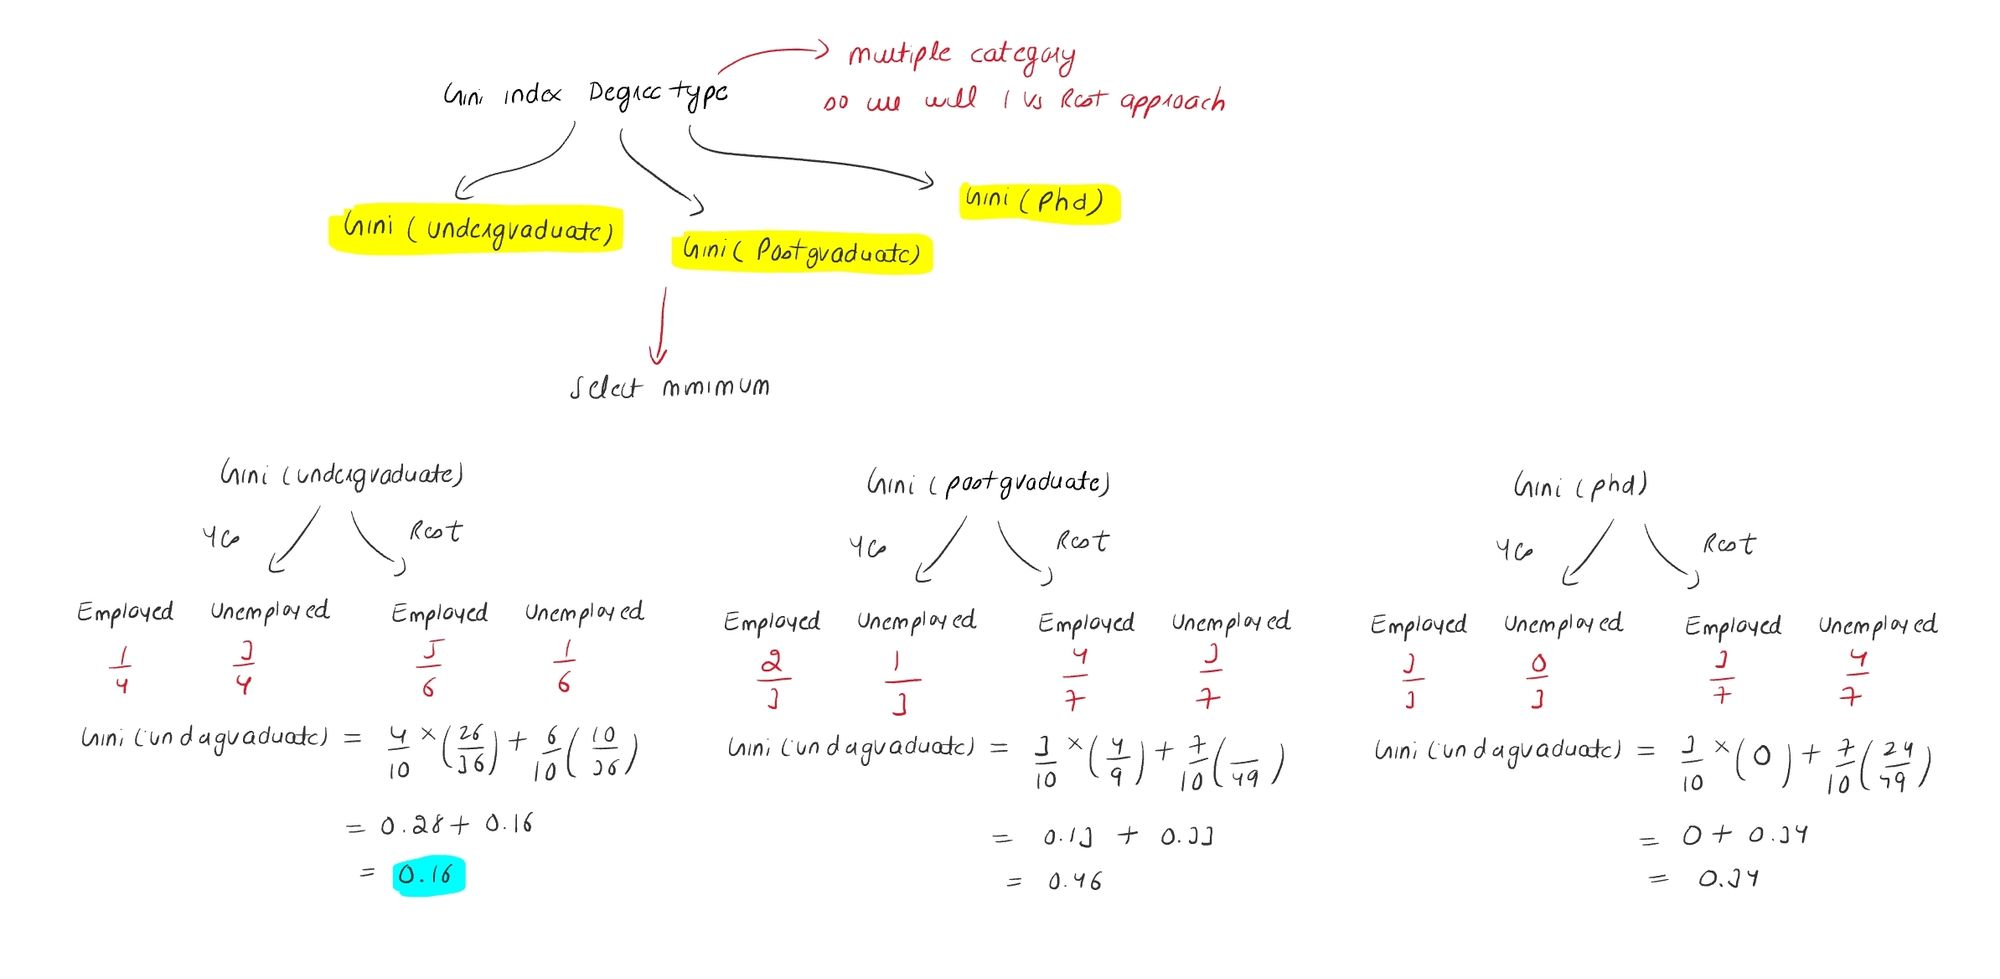 multiple category
Gini index Degree type
so we will 1 Vs Rest approach
Gini (phd)
Gini (undergraduate)
Gini (Postgraduate)
Select minimum
Gini (undergraduate)
Yes Rest
Employed Unemployed Employed Unemployed
1/4 3/4 5/6 1/6
Gini (undergraduate) = 4/10 × (26/36) + 6/10 (10/36)
= 0.28 + 0.16
= 0.16
Gini (postgraduate)
Yes Rest
Employed Unemployed Employed Unemployed
2/3 1/3 4/7 3/7
Gini (undergraduate) = 3/10 × (4/9) + 7/10 ( /49)
= 0.13 + 0.33
= 0.46
Gini (phd)
Yes Rest
Employed Unemployed Employed Unemployed
3/3 0/3 3/7 4/7
Gini (undergraduate) = 3/10 × (0) + 7/10 (24/49)
= 0 + 0.34
= 0.34